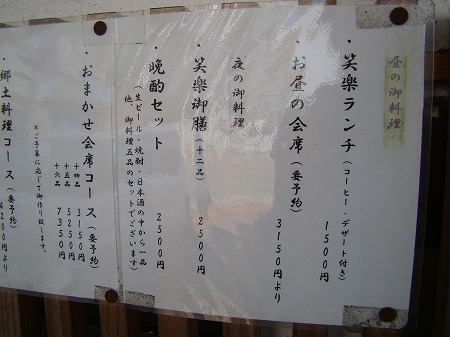 昼の御料理
・笑楽ランチ(コーヒー・デザート付き) 1500円
・お昼の会席(要予約) 3150円より
夜の御料理
・笑楽御膳(十二品) 2500円
・晩酌セット 2500円
(生ビール・焼酎・日本酒の中から一品
他、御料理五品のセットでございます)
・おまかせ会席コース(要予約)
十四品 3150円
十五品 5250円
十六品 7350円
*ご予算に応じて御作り致します。
・郷土料理コース(要予約)
4200円より